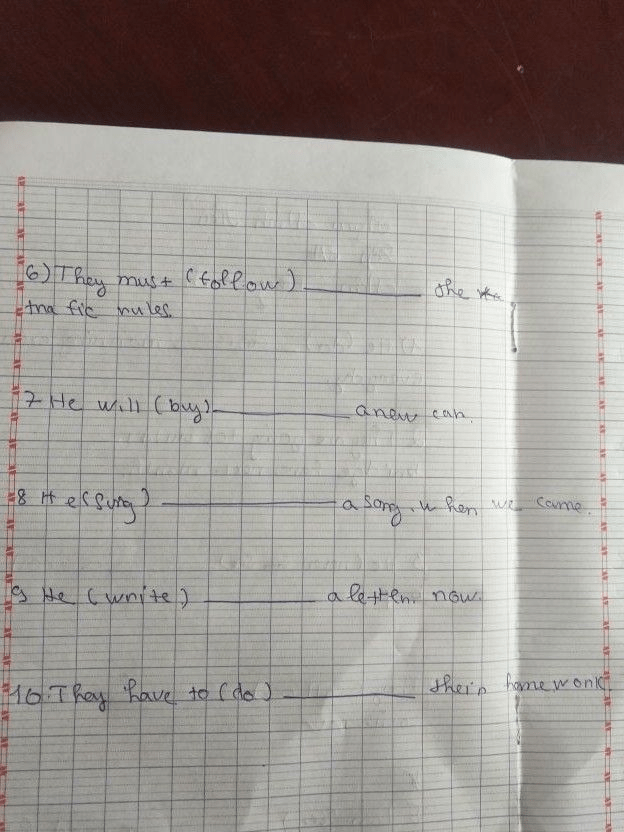 6) They must (follow) ________ the
trafic rules.
7 He will (buy) ________ a new car.
8 He (sung) ________ a song. when we came.
9 He (write) ________ a letter. now.
10. They have to (do) ________ their homework.